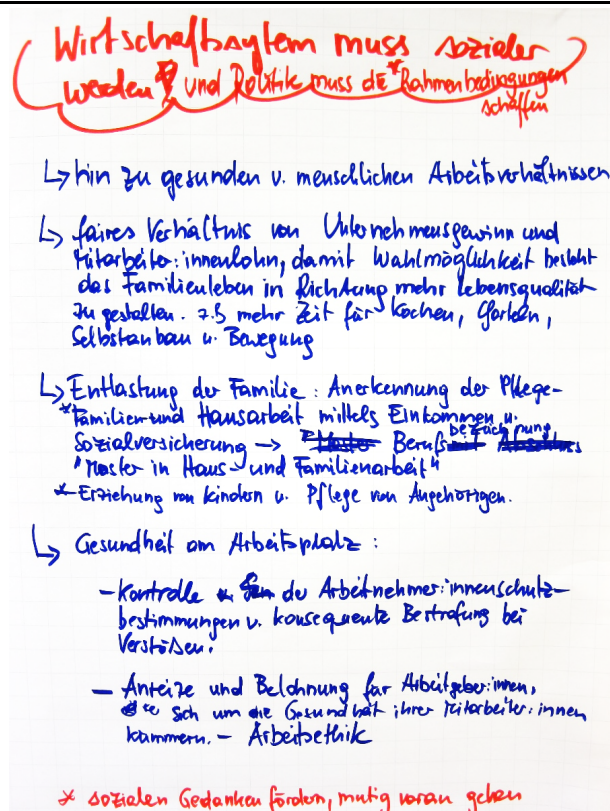 Wirtschaftssytem muss sozialer
werden und Politik muss die* Rahmenbedingungen
schaffen
↳ hin zu gesunden u. menschlichen Arbeitsverhältnissen
↳ faires Verhältnis von Unternehmensgewinn und
Mitarbeiter:innenlohn, damit Wahlmöglichkeit besteht
das Familienleben in Richtung mehr Lebensqualität
zu gestalten. z.B mehr Zeit für Kochen, Garteln,
Selbstanbau u. Bewegung
↳ Entlastung der Familie: Anerkennung der Pflege-
*Familien und Hausarbeit mittels Einkommen u.
Sozialversicherung → Berufsbezeichnung
"Master in Haus- und Familienarbeit"
* Erziehung von Kindern u. Pflege von Angehörigen.
↳ Gesundheit am Arbeitsplatz:
- Kontrolle der Arbeitnehmer:innenschutz-
bestimmungen u. konsequente Bestrafung bei
Verstößen.
- Anreize und Belohnung für Arbeitgeber:innen,
sich um die Gesundheit ihrer Mitarbeiter:innen
kümmern. - Arbeitsethik
* sozialen Gedanken fördern, mutig voran gehen